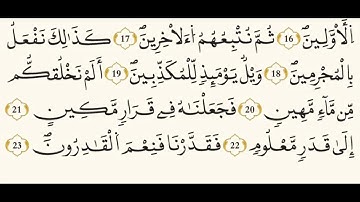 اَ۬لَاوَّلِينَۖ 16 ثُمَّ نُتْبِعُهُمُ اُ۬ءَلَاخِرِينَۖ 17 كَذَٰلِكَ نَفْعَلُ
بِالْمُجْرِمِينَۖ 18 وَيْلٌ يَوْمَئِذٖ لِّلْمُكَذِّبِينَۖ 19 أَلَمْ نَخْلُقكُّم
مِّن مَّآءٖ مَّهِينٖ 20 فَجَعَلْنَٰهُ فِے قَرَارٖ مَّكِينٍ 21
إِلَىٰ قَدَرٖ مَّعْلُومٖ 22 فَقَدَّرْنَا فَنِعْمَ اَ۬لْقَٰدِرُونَۖ 23